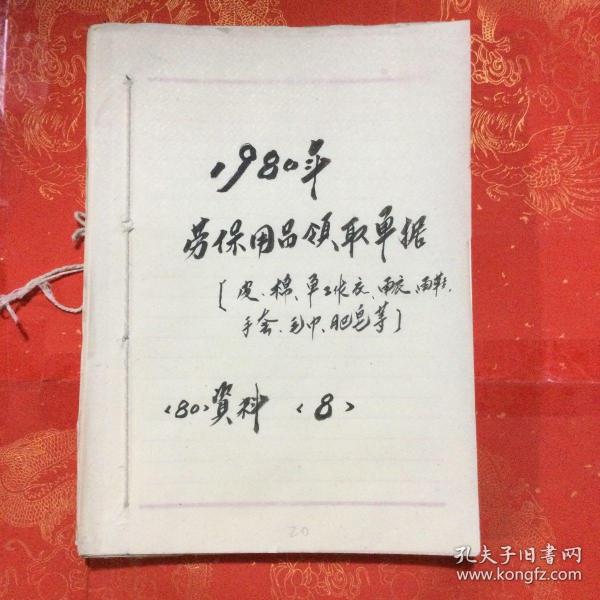 1980年
劳保用品领取单据
[皮、棉、单工作衣、雨衣、雨鞋、
手套、毛巾、肥皂等]
<80>資料 <8>
20
孔夫子旧書网
www.kongfz.com